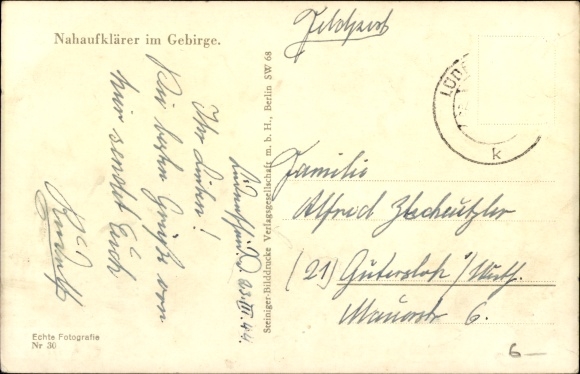 Nahaufklärer im Gebirge.
Feldpost
LÜD
k
Lüdenscheid, 23.III.44.
Ihr Lieben!
Die besten Grüße von
hier sendet Euch
Steiniger-Bilddrucke Verlagsgesellschaft m. b. H., Berlin SW 68
Familie
Alfred
(21) Gütersloh i/Westf.
Mauerstr 6.
Echte Fotografie
Nr 36
6 —